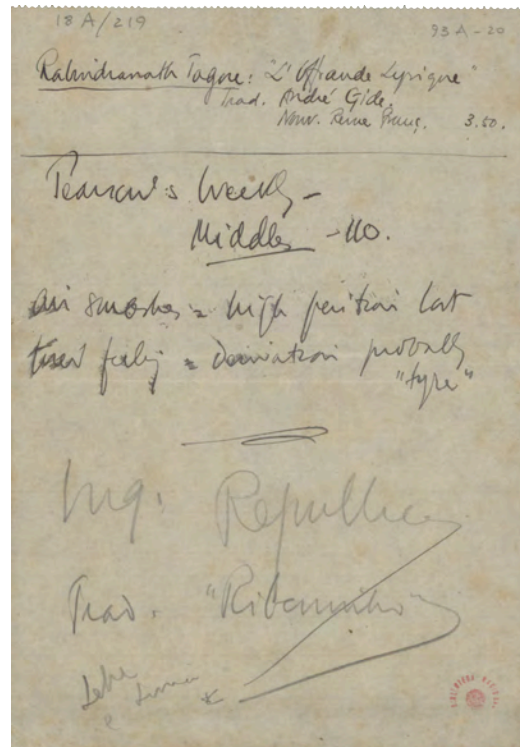 18 A/219
93 A-20
Rabindranath Tagore: "L'Offrande Lyrique"
Trad. André Gide.
Nouv. Revue Franç. 3.50.
Pearson's Weekly -
Middles - 110.
air smashes = high position lost
tired feeling = derivation probably
"tyre"
Ing. Republica
Trad.